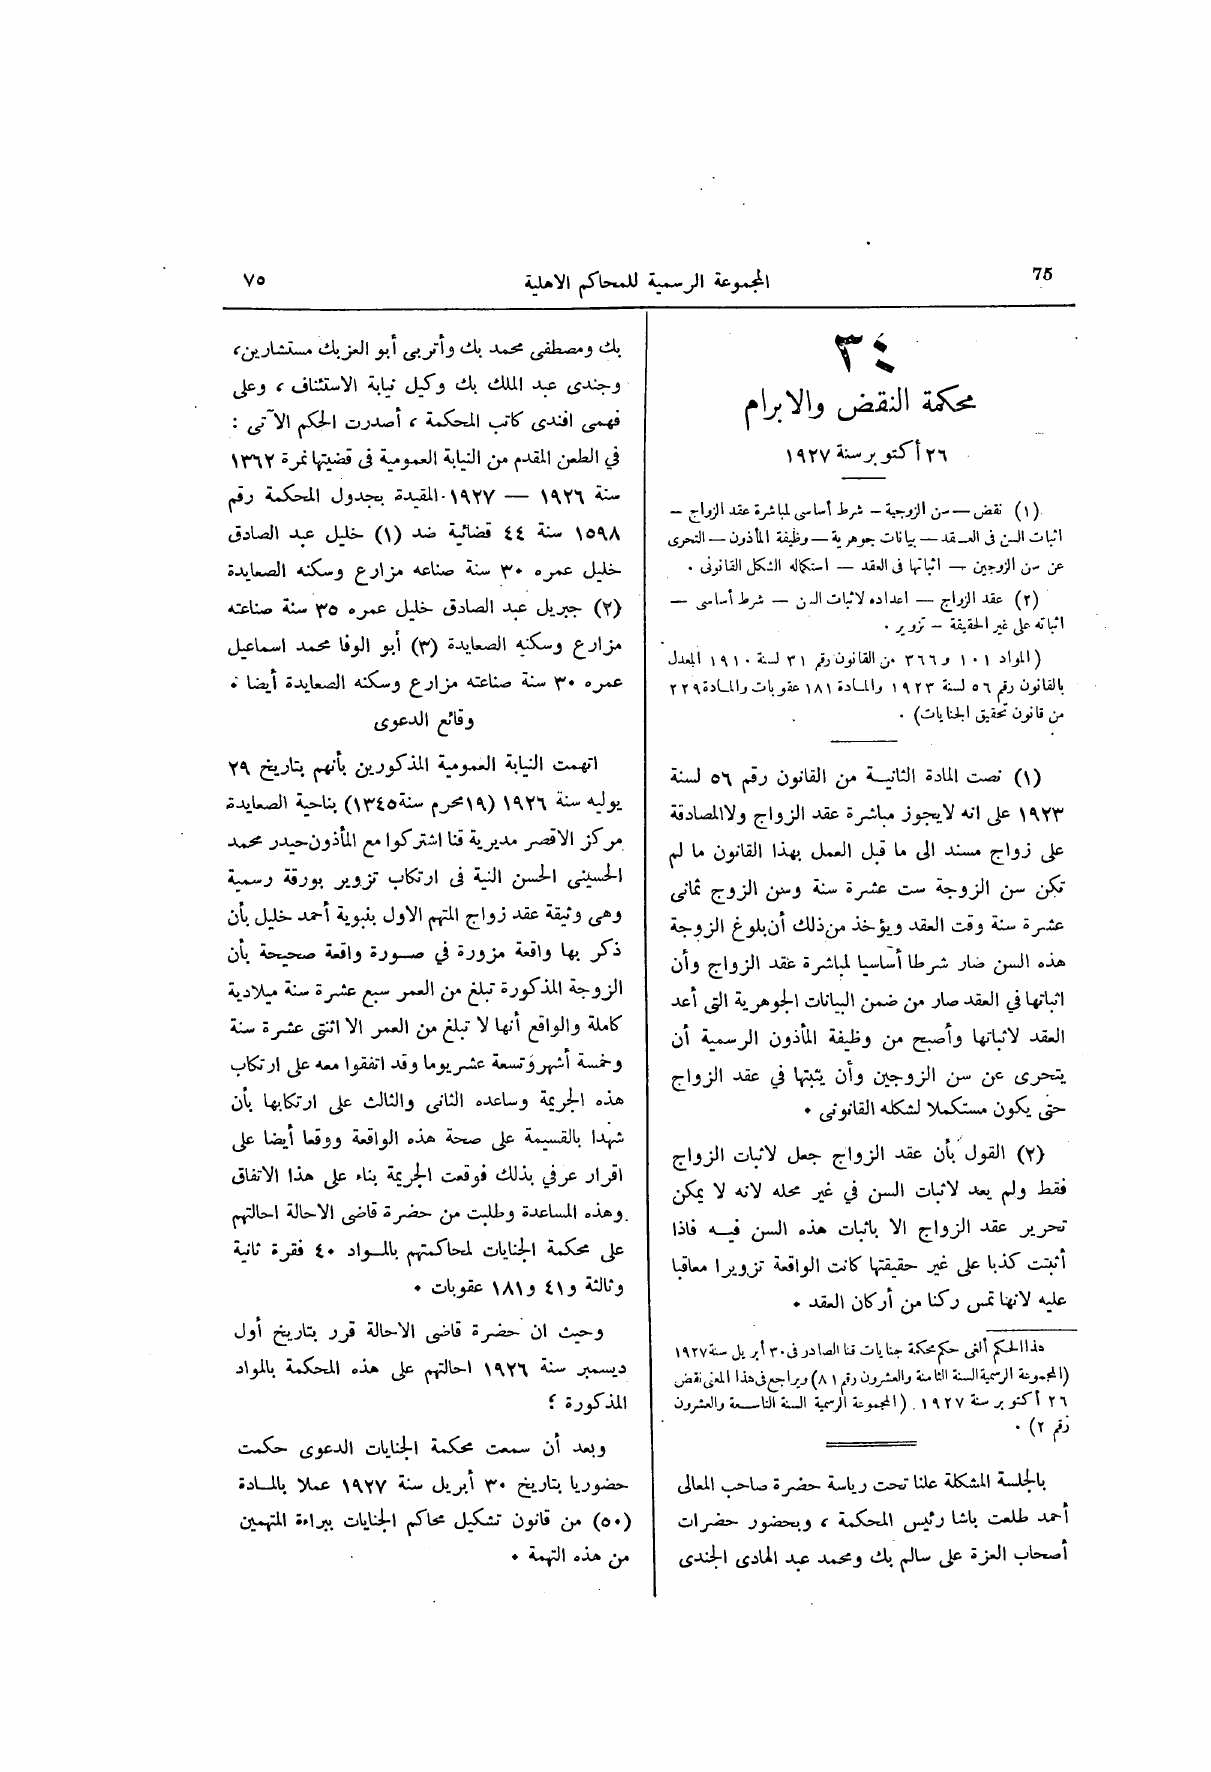 75
المجموعة الرسمية للمحاكم الاهلية
٧٥
٣٤
محكمة النقض والابرام
٢٦ أكتوبر سنة ١٩٢٧
(١) نقض — سن الزوجية – شرط أساسى لمباشرة عقد الزواج –
اثبات السن فى العقد – بيانات جوهرية – وظيفة المأذون – التحرى
عن سن الزوجين – اثباتها فى العقد – استكماله الشكل القانونى .
(٢) عقد الزواج – اعداده لاثبات السن – شرط أساسى –
اثباته على غير الحقيقة – تزوير .
(المواد ١٠١ و ٣٦٦ من القانون رقم ٣١ لسنة ١٩١٠ المعدل
بالقانون رقم ٥٦ لسنة ١٩٢٣ والمادة ١٨١ عقوبات والمادة ٢٢٩
من قانون تحقيق الجنايات) .
(١) نصت المادة الثانية من القانون رقم ٥٦ لسنة
١٩٢٣ على انه لايجوز مباشرة عقد الزواج ولاالمصادقة
على زواج مسند الى ما قبل العمل بهذا القانون ما لم
تكن سن الزوجة ست عشرة سنة وسن الزوج ثمانى
عشرة سنة وقت العقد ويؤخذ من ذلك أن بلوغ الزوجة
هذه السن صار شرطا أساسيا لمباشرة عقد الزواج وأن
اثباتها في العقد صار من ضمن البيانات الجوهرية التى أعد
العقد لاثباتها وأصبح من وظيفة المأذون الرسمية أن
يتحرى عن سن الزوجين وأن يثبتها في عقد الزواج
حتى يكون مستكملا لشكله القانونى .
(٢) القول بأن عقد الزواج جعل لاثبات الزواج
فقط ولم يعد لاثبات السن في غير محله لانه لا يمكن
تحرير عقد الزواج الا باثبات هذه السن فيه فاذا
أثبتت كذبا على غير حقيقتها كانت الواقعة تزويرا معاقبا
عليه لانها تمس ركنا من أركان العقد .
هذا الحكم ألغى حكم محكمة جنايات قنا الصادر فى ٣٠ أبريل سنة ١٩٢٧
(المجموعة الرسمية السنة الثامنة والعشرون رقم ٨١) ويراجع فى هذا المعنى نقض
٢٦ أكتوبر سنة ١٩٢٧ . (المجموعة الرسمية السنة التاسعة والعشرون
رقم ٢) .
بالجلسة المشكلة علنا تحت رياسة حضرة صاحب المعالى
أحمد طلعت باشا رئيس المحكمة ، وبحضور حضرات
أصحاب العزة على سالم بك ومحمد عبد الهادى الجندى
بك ومصطفى محمد بك وأتربى أبو العز بك مستشارين،
وجندى عبد الملك بك وكيل نيابة الاستئناف ، وعلى
فهمى افندى كاتب المحكمة ، أصدرت الحكم الآتى :
في الطعن المقدم من النيابة العمومية فى قضيتها نمرة ١٣٦٢
سنة ١٩٢٦ — ١٩٢٧ المقيدة بجدول المحكمة رقم
١٥٩٨ سنة ٤٤ قضائية ضد (١) خليل عبد الصادق
خليل عمره ٣٠ سنة صناعه مزارع وسكنه الصعايدة
(٢) جبريل عبد الصادق خليل عمره ٣٥ سنة صناعته
مزارع وسكنه الصعايدة (٣) أبو الوفا محمد اسماعيل
عمره ٣٠ سنة صناعته مزارع وسكنه الصعايدة أيضا .
وقائع الدعوى
اتهمت النيابة العمومية المذكورين بأنهم بتاريخ ٢٩
يوليه سنة ١٩٢٦ (١٩ محرم سنة ١٣٤٥) بناحية الصعايدة
مركز الاقصر مديرية قنا اشتركوا مع المأذون حيدر محمد
الحسينى الحسن النية فى ارتكاب تزوير بورقة رسمية
وهى وثيقة عقد زواج المتهم الاول بنبوية أحمد خليل بأن
ذكر بها واقعة مزورة في صورة واقعة صحيحة بأن
الزوجة المذكورة تبلغ من العمر سبع عشرة سنة ميلادية
كاملة والواقع أنها لا تبلغ من العمر الا اثنتى عشرة سنة
وخمسة أشهر وتسعة عشر يوما وقد اتفقوا معه على ارتكاب
هذه الجريمة وساعده الثانى والثالث على ارتكابها بأن
شهدا بالقسيمة على صحة هذه الواقعة ووقعا أيضا على
اقرار عرفي بذلك فوقعت الجريمة بناء على هذا الاتفاق
وهذه المساعدة وطلبت من حضرة قاضى الاحالة احالتهم
على محكمة الجنايات لمحاكمتهم بالمواد ٤٠ فقرة ثانية
وثالثة و٤١ و١٨١ عقوبات .
وحيث ان حضرة قاضى الاحالة قرر بتاريخ أول
ديسمبر سنة ١٩٢٦ احالتهم على هذه المحكمة بالمواد
المذكورة ؛
وبعد أن سمعت محكمة الجنايات الدعوى حكمت
حضوريا بتاريخ ٣٠ أبريل سنة ١٩٢٧ عملا بالمادة
(٥٠) من قانون تشكيل محاكم الجنايات ببراءة المتهمين
من هذه التهمة .